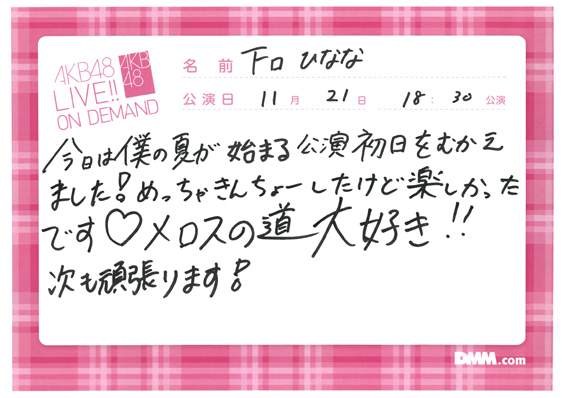 AKB48
LIVE!!
ON DEMAND
AKB
48
名前 下口ひなな
公演日 11月 21日 18:30 公演
今日は僕の夏が始まる公演初日をむかえ
ました!めっちゃきんちょーしたけど楽しかった
です♡メロスの道大好き!!
次も頑張ります!
DMM.com